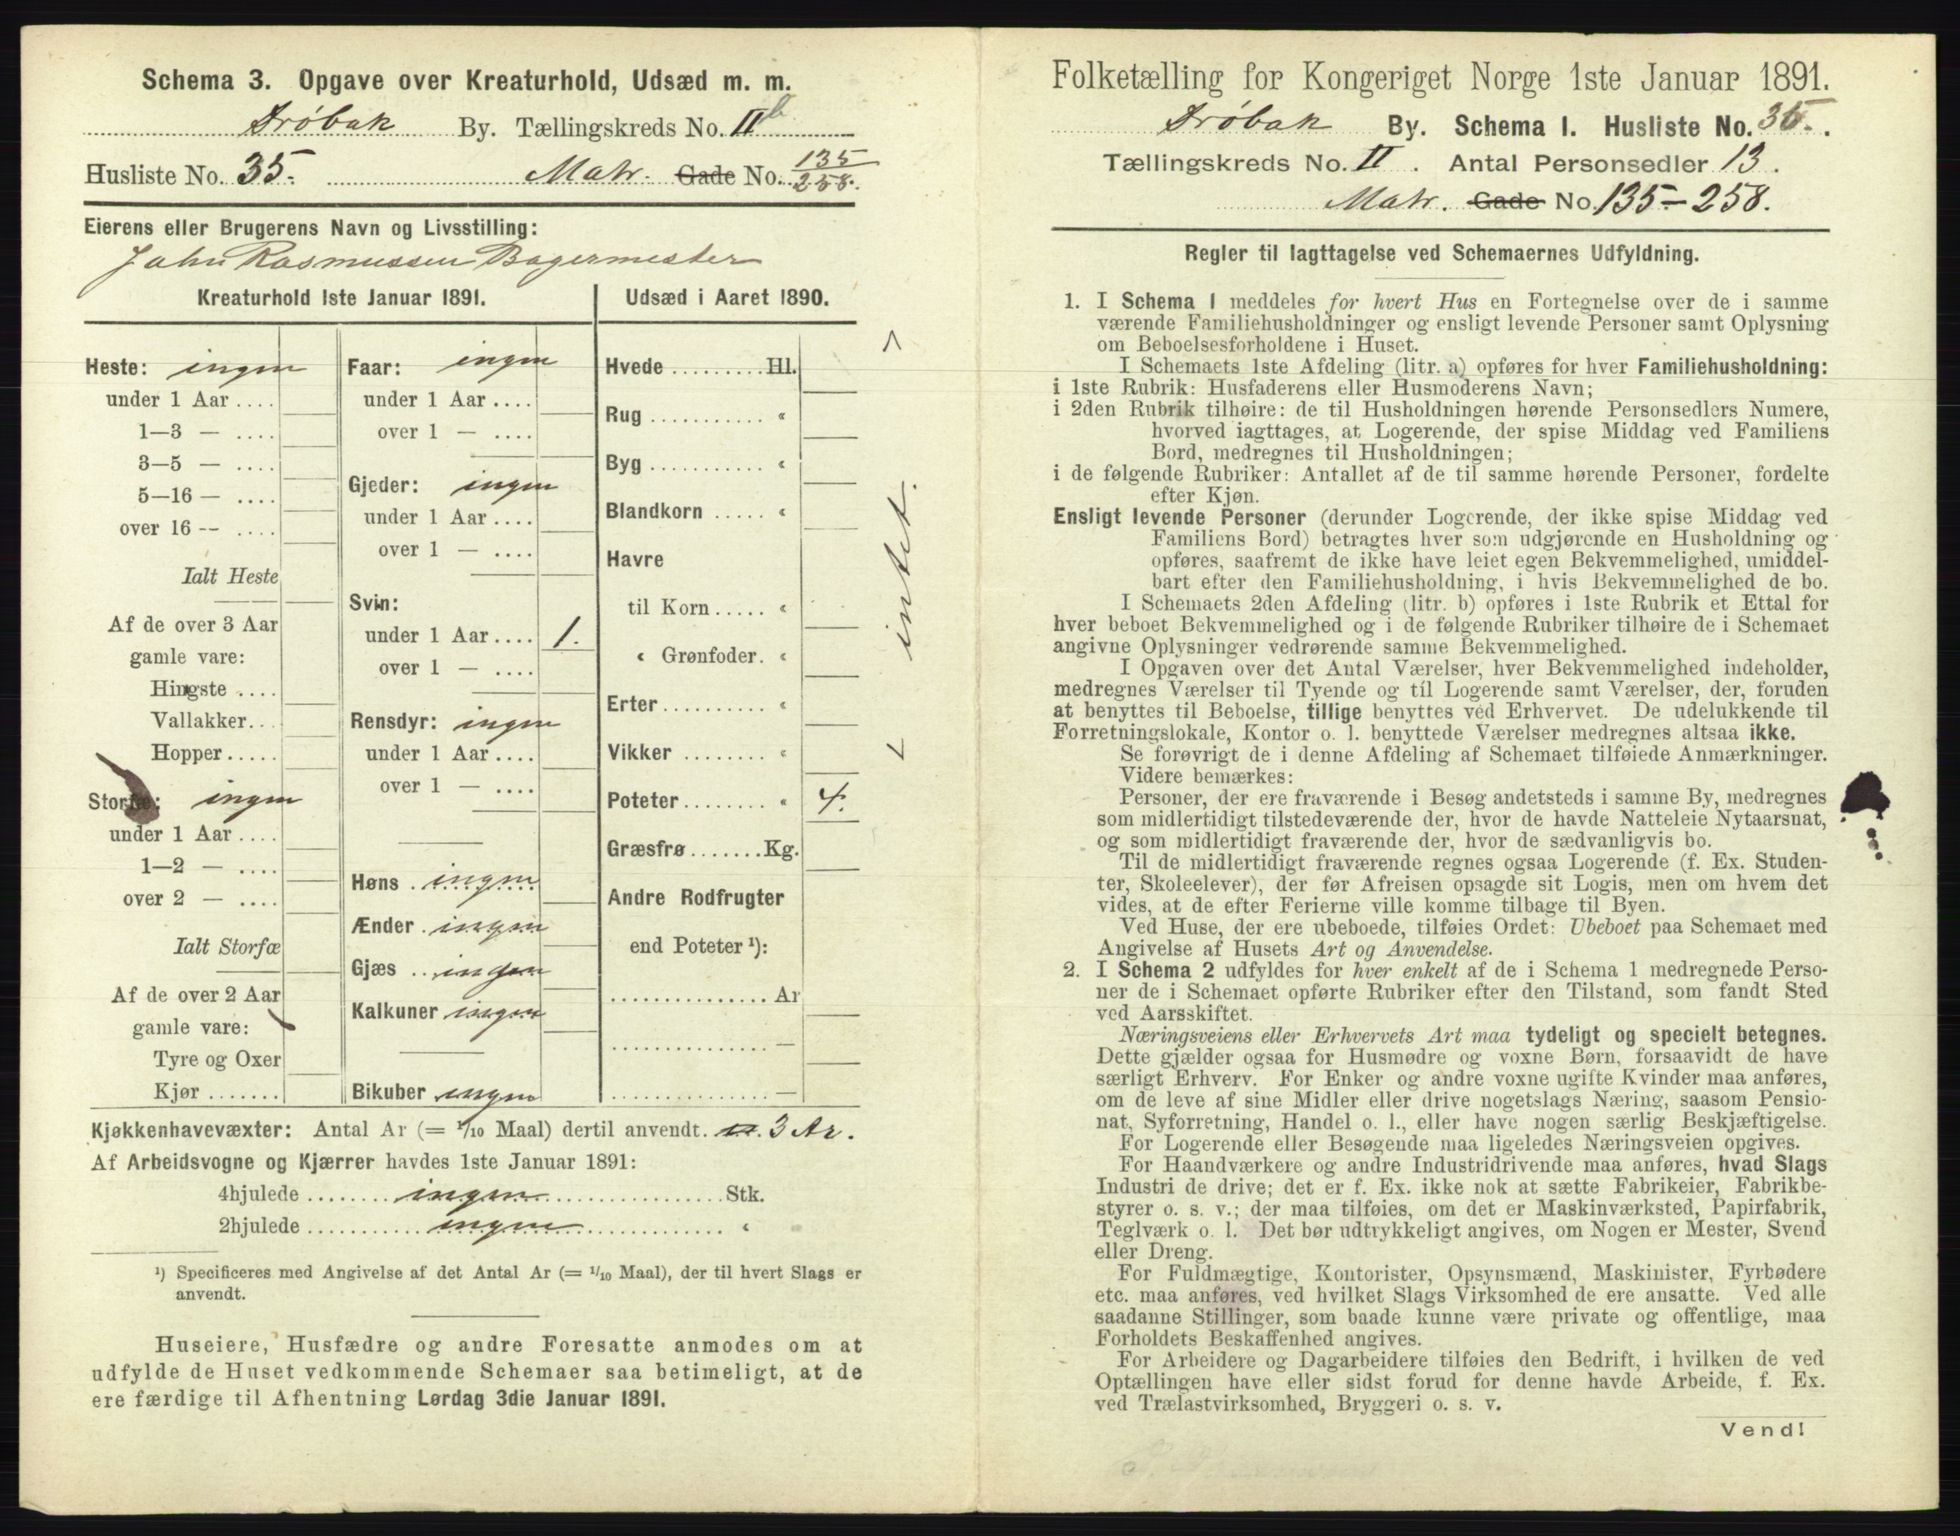 Schema 3. Opgave over Kreaturhold, Udsæd m. m.
Drøbak By. Tællingskreds No. II b
Husliste No. 35. Matr. Gade No. 135/258.
Eierens eller Brugerens Navn og Livsstilling:
John Rasmussen Bagermester
Kreaturhold 1ste Januar 1891.
Heste: ingen
under 1 Aar ....
1—3 — ....
3—5 — ....
5—16 — ....
over 16 -- ....
Ialt Heste
Af de over 3 Aar
gamle vare:
Hingste ....
Vallakker...
Hopper.....
Storfæ: ingen
under 1 Aar ....
1—2 — ....
over 2 — ....
Ialt Storfæ
Af de over 2 Aar
gamle vare:
Tyre og Oxer
Kjør .......
Faar: ingen
under 1 Aar ....
over 1 — ....
Gjeder: ingen
under 1 Aar ....
over 1 — ....
Svin:
under 1 Aar .... 1.
over 1 — ....
Rensdyr: ingen
under 1 Aar ....
over 1 — ....
Høns . ingen
Ænder . ingen
Gjæs .. ingen
Kalkuner ingen
Bikuber ingen
Udsæd i Aaret 1890.
Hvede ......... Hl.
Rug ............ «
Byg ............ «
Blandkorn ..... «
Havre
til Korn ..... «
« Grønfoder. «
Erter .......... «
Vikker ........ «
Poteter ........ « 4.
Græsfrø ....... Kg.
Andre Rodfrugter
end Poteter ¹):
............... Ar
............... —
............... —
intet.
Kjøkkenhavevæxter: Antal Ar (= 1/10 Maal) dertil anvendt. 3 Ar.
Af Arbeidsvogne og Kjærrer havdes 1ste Januar 1891:
4hjulede ........ ingen ................. Stk.
2hjulede ........ ingen ................. «
¹) Specificeres med Angivelse af det Antal Ar (= 1/10 Maal), der til hvert Slags er
anvendt.
Huseiere, Husfædre og andre Foresatte anmodes om at
udfylde de Huset vedkommende Schemaer saa betimeligt, at de
ere færdige til Afhentning Lørdag 3die Januar 1891.
Folketælling for Kongeriget Norge 1ste Januar 1891.
Drøbak By. Schema 1. Husliste No. 35.
Tællingskreds No. II. Antal Personsedler 13.
Matr. Gade No. 135-258.
Regler til Iagttagelse ved Schemaernes Udfyldning.
1. I Schema 1 meddeles for hvert Hus en Fortegnelse over de i samme
værende Familiehusholdninger og ensligt levende Personer samt Oplysning
om Beboelsesforholdene i Huset.
I Schemaets 1ste Afdeling (litr. a) opføres for hver Familiehusholdning:
i 1ste Rubrik: Husfaderens eller Husmoderens Navn;
i 2den Rubrik tilhøire: de til Husholdningen hørende Personsedlers Numere,
hvorved iagttages, at Logerende, der spise Middag ved Familiens
Bord, medregnes til Husholdningen;
i de følgende Rubriker: Antallet af de til samme hørende Personer, fordelte
efter Kjøn.
Ensligt levende Personer (derunder Logerende, der ikke spise Middag ved
Familiens Bord) betragtes hver som udgjørende en Husholdning og
opføres, saafremt de ikke have leiet egen Bekvemmelighed, umiddel-
bart efter den Familiehusholdning, i hvis Bekvemmelighed de bo.
I Schemaets 2den Afdeling (litr. b) opføres i 1ste Rubrik et Ettal for
hver beboet Bekvemmelighed og i de følgende Rubriker tilhøire de i Schemaet
angivne Oplysninger vedrørende samme Bekvemmelighed.
I Opgaven over det Antal Værelser, hver Bekvemmelighed indeholder,
medregnes Værelser til Tyende og til Logerende samt Værelser, der, foruden
at benyttes til Beboelse, tillige benyttes ved Erhvervet. De udelukkende til
Forretningslokale, Kontor o. l. benyttede Værelser medregnes altsaa ikke.
Se forøvrigt de i denne Afdeling af Schemaet tilføiede Anmærkninger.
Videre bemærkes:
Personer, der ere fraværende i Besøg andetsteds i samme By, medregnes
som midlertidigt tilstedeværende der, hvor de havde Natteleie Nytaarsnat,
og som midlertidigt fraværende der, hvor de sædvanligvis bo.
Til de midlertidigt fraværende regnes ogsaa Logerende (f. Ex. Studen-
ter, Skoleelever), der før Afreisen opsagde sit Logis, men om hvem det
vides, at de efter Ferierne ville komme tilbage til Byen.
Ved Huse, der ere ubeboede, tilføies Ordet: Ubeboet paa Schemaet med
Angivelse af Husets Art og Anvendelse.
2. I Schema 2 udfyldes for hver enkelt af de i Schema 1 medregnede Perso-
ner de i Schemaet opførte Rubriker efter den Tilstand, som fandt Sted
ved Aarsskiftet.
Næringsveiens eller Erhvervets Art maa tydeligt og specielt betegnes.
Dette gjælder ogsaa for Husmødre og voxne Børn, forsaavidt de have
særligt Erhverv. For Enker og andre voxne ugifte Kvinder maa anføres,
om de leve af sine Midler eller drive nogetslags Næring, saasom Pensio-
nat, Syforretning, Handel o. l., eller have nogen særlig Beskjæftigelse.
For Logerende eller Besøgende maa ligeledes Næringsveien opgives.
For Haandværkere og andre Industridrivende maa anføres, hvad Slags
Industri de drive; det er f. Ex. ikke nok at sætte Fabrikeier, Fabrikbe-
styrer o. s. v.; der maa tilføies, om det er Maskinværksted, Papirfabrik,
Teglværk o. l. Det bør udtrykkeligt angives, om Nogen er Mester, Svend
eller Dreng.
For Fuldmægtige, Kontorister, Opsynsmænd, Maskinister, Fyrbødere
etc. maa anføres, ved hvilket Slags Virksomhed de ere ansatte. Ved alle
saadanne Stillinger, som baade kunne være private og offentlige, maa
Forholdets Beskaffenhed angives.
For Arbeidere og Dagarbeidere tilføies den Bedrift, i hvilken de ved
Optællingen have eller sidst forud for denne havde Arbeide, f. Ex.
ved Trælastvirksomhed, Bryggeri o. s. v.
Vend!